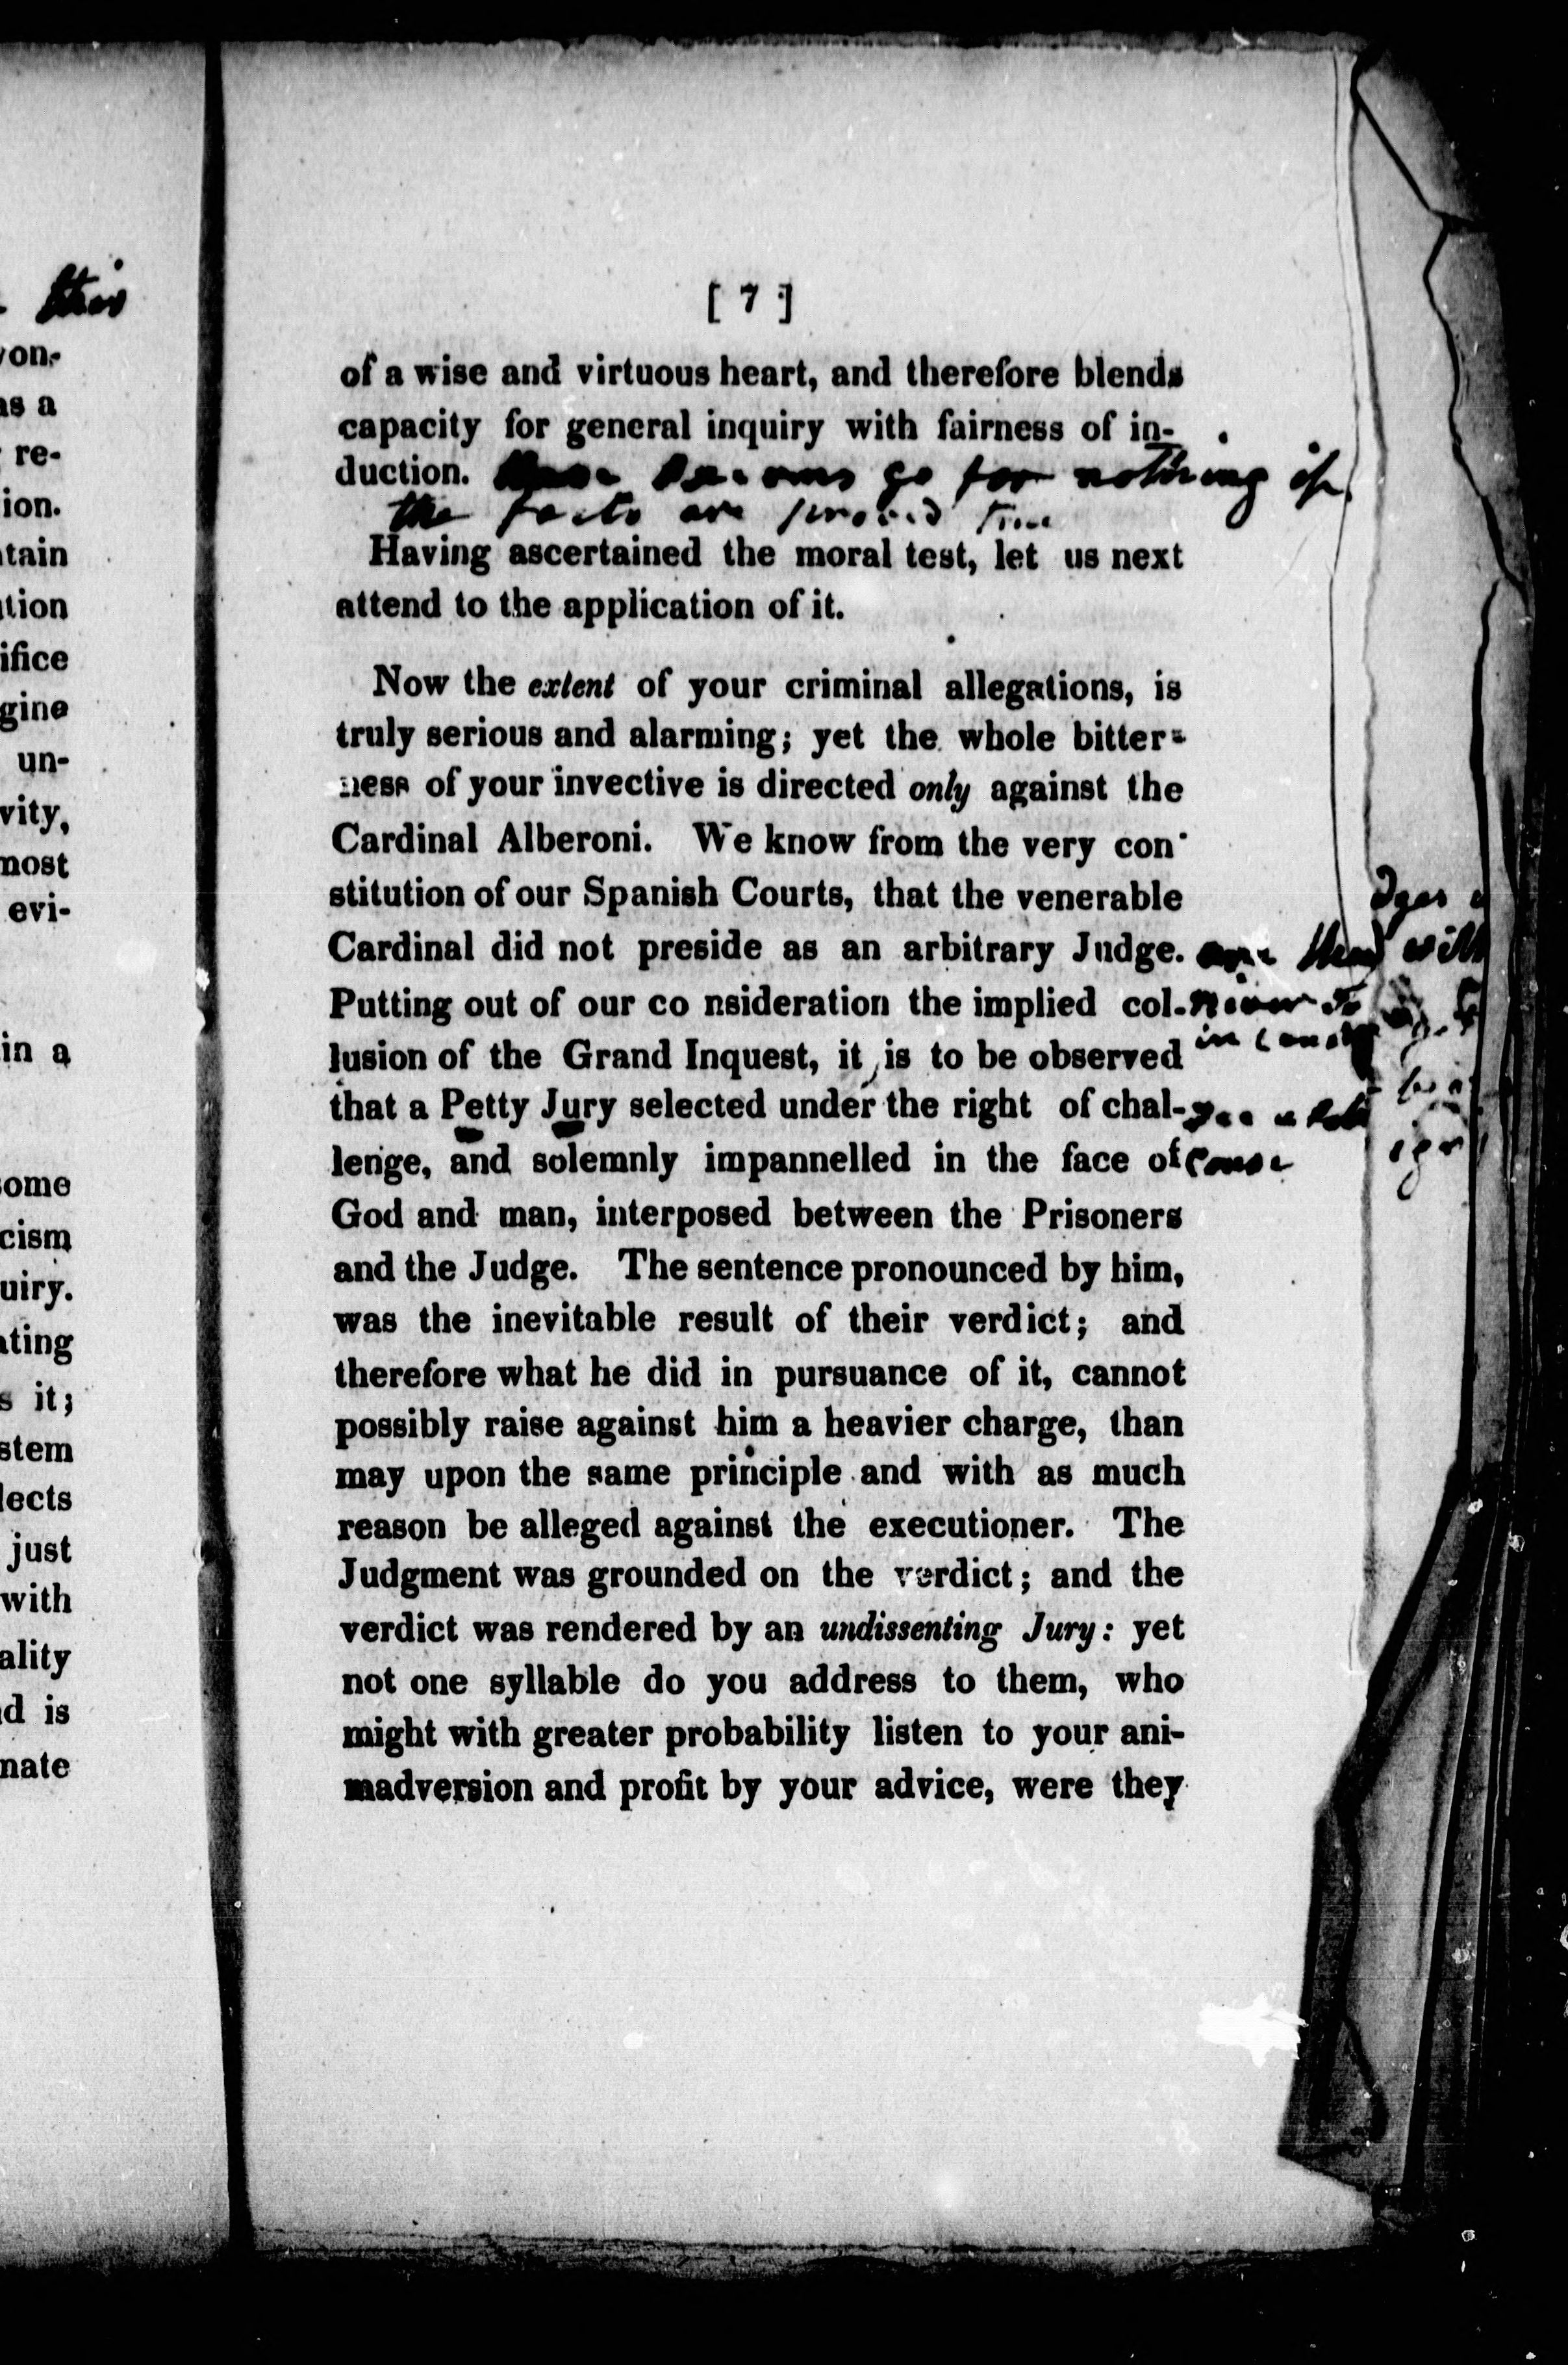 this
on-
as a
re-
ion.
tain
tion
ifice
gine
un-
vity,
most
evi-
in a
some
cism
uiry.
ating
s it;
stem
lects
just
with
ality
d is
nate
[ 7 ]
of a wise and virtuous heart, and therefore blends
capacity for general inquiry with fairness of in-
duction. go for nothing if
the facts are proved true
Having ascertained the moral test, let us next
attend to the application of it.
Now the extent of your criminal allegations, is
truly serious and alarming; yet the whole bitter-
ness of your invective is directed only against the
Cardinal Alberoni. We know from the very con-
stitution of our Spanish Courts, that the venerable
Cardinal did not preside as an arbitrary Judge.
Putting out of our co nsideration the implied col-
lusion of the Grand Inquest, it, is to be observed
that a Petty Jury selected under the right of chal-
lenge, and solemnly impannelled in the face of
God and man, interposed between the Prisoners
and the Judge. The sentence pronounced by him,
was the inevitable result of their verdict; and
therefore what he did in pursuance of it, cannot
possibly raise against him a heavier charge, than
may upon the same principle and with as much
reason be alleged against the executioner. The
Judgment was grounded on the verdict; and the
verdict was rendered by an undissenting Jury: yet
not one syllable do you address to them, who
might with greater probability listen to your ani-
madversion and profit by your advice, were they